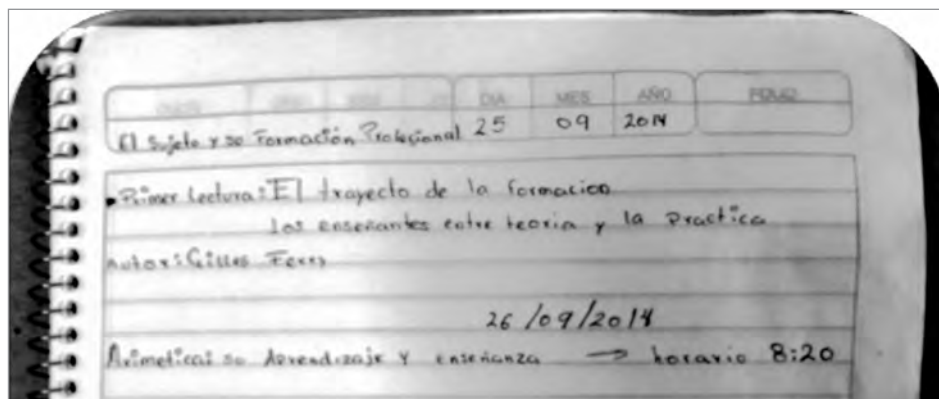 DIA MES AÑO FOLIO
El Sujeto y so Formación Profesional 25 09 2014
Primer lectura: El trayecto de la formacion
los enseñantes entre teoria y la practica
Autor: Gilles Ferry
26/09/2014
Arimetica: so Aprendizaje y enseñanza → horario 8:20